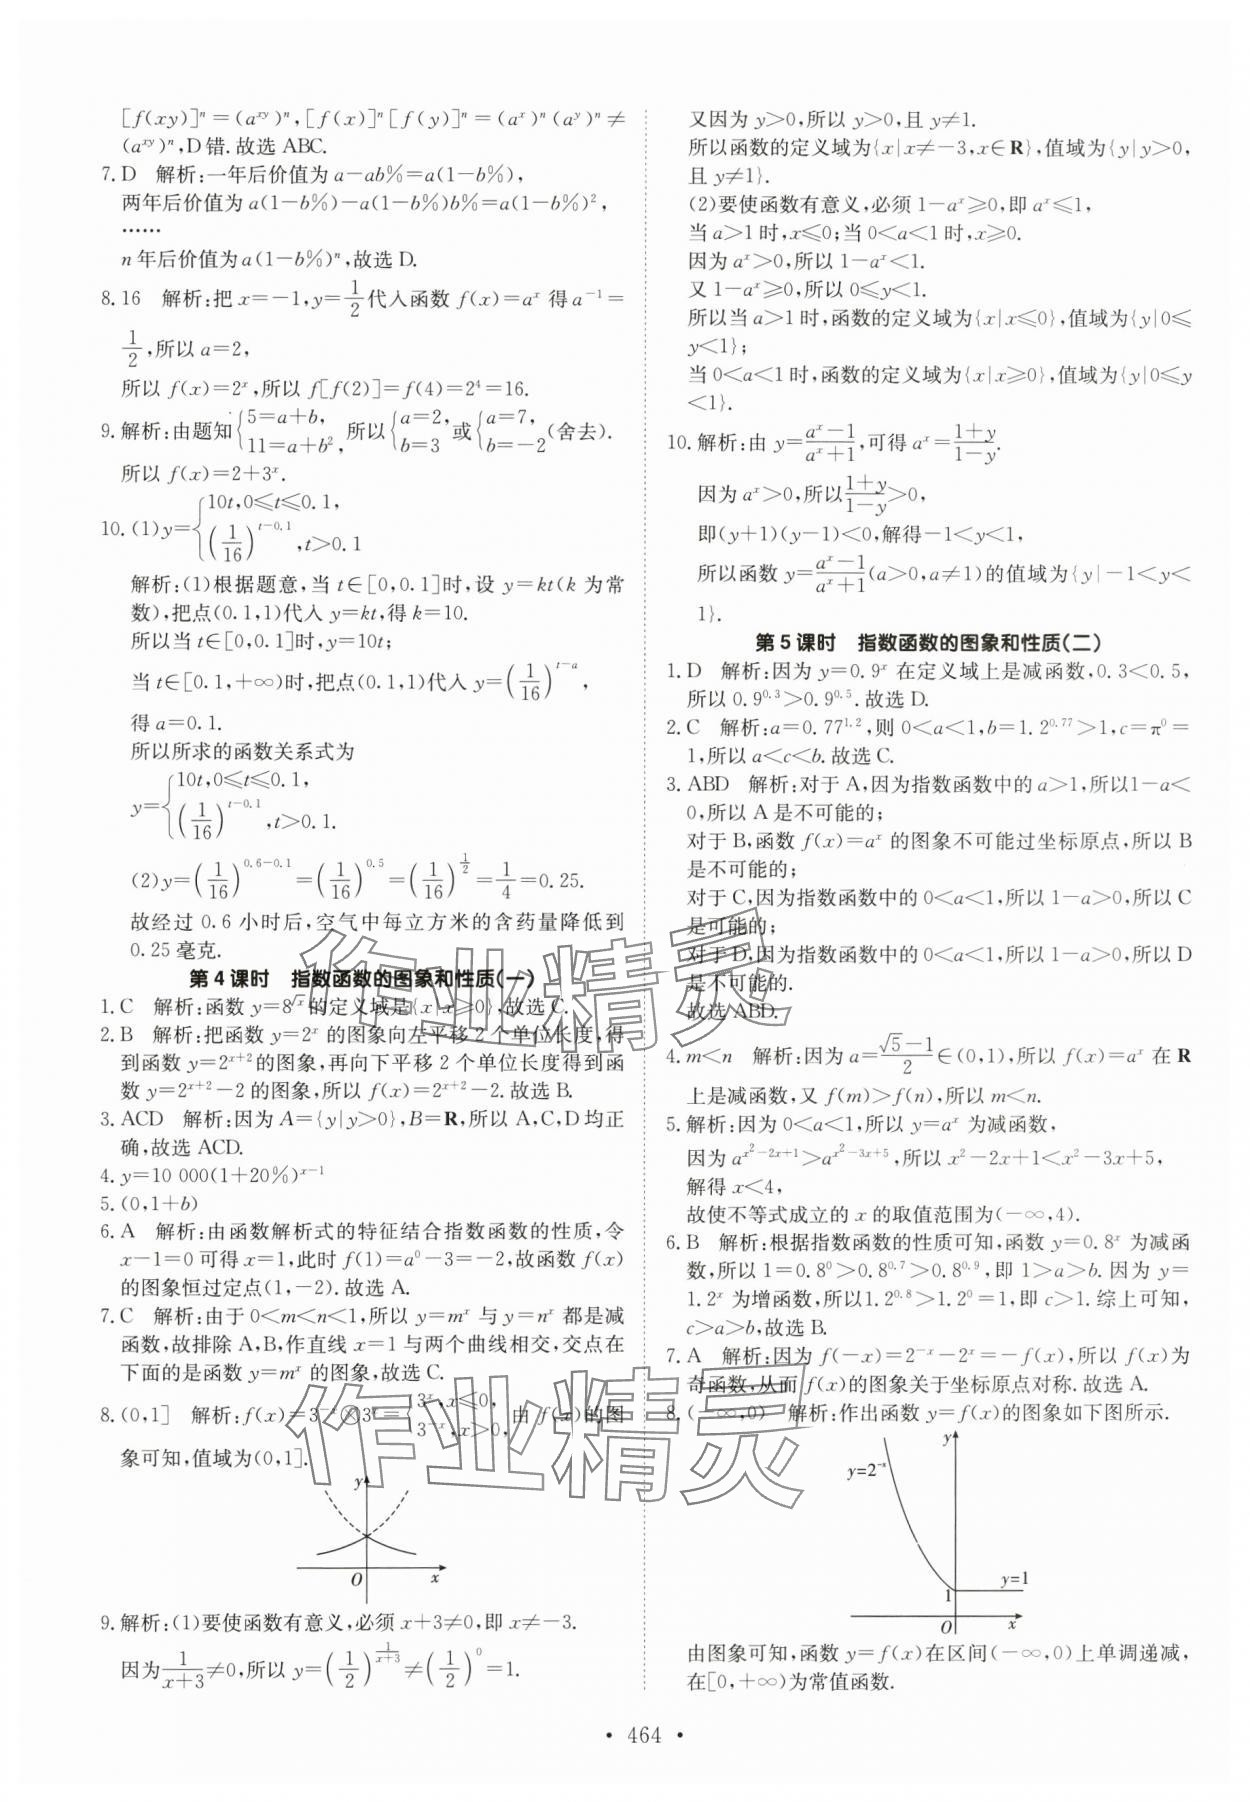 [f(xy)]ⁿ=(aˣʸ)ⁿ,[f(x)]ⁿ[f(y)]ⁿ=(aˣ)ⁿ(aʸ)ⁿ≠
(aˣʸ)ⁿ,D错.故选ABC.
7.D 解析:一年后价值为a-ab%=a(1-b%),
两年后价值为a(1-b%)-a(1-b%)b%=a(1-b%)²,
……
n年后价值为a(1-b%)ⁿ,故选D.
8.16 解析:把x=-1,y=1/2代入函数f(x)=aˣ得a⁻¹=
1/2,所以a=2,
所以f(x)=2ˣ,所以f[f(2)]=f(4)=2⁴=16.
9.解析:由题知{5=a+b, 11=a+b², 所以{a=2, b=3 或{a=7, b=-2 (舍去).
所以f(x)=2+3ˣ.
10.(1)y={10t,0≤t≤0.1, (1/16)^(t-0.1),t>0.1
解析:(1)根据题意,当t∈[0,0.1]时,设y=kt(k为常
数),把点(0.1,1)代入y=kt,得k=10.
所以当t∈[0,0.1]时,y=10t;
当t∈[0.1,+∞)时,把点(0.1,1)代入y=(1/16)^(t-a),
得a=0.1.
所以所求的函数关系式为
y={10t,0≤t≤0.1, (1/16)^(t-0.1),t>0.1.
(2)y=(1/16)^(0.6-0.1)=(1/16)^0.5=(1/16)^(1/2)=1/4=0.25.
故经过0.6小时后,空气中每立方米的含药量降低到
0.25毫克.
第4课时 指数函数的图象和性质(一)
1.C 解析:函数y=8^√x的定义域是{x|x≥0},故选C.
2.B 解析:把函数y=2ˣ的图象向左平移2个单位长度,得
到函数y=2ˣ⁺²的图象,再向下平移2个单位长度得到函
数y=2ˣ⁺²-2的图象,所以f(x)=2ˣ⁺²-2.故选B.
3.ACD 解析:因为A={y|y>0},B=R,所以A,C,D均正
确,故选ACD.
4.y=10 000(1+20%)ˣ⁻¹
5.(0,1+b)
6.A 解析:由函数解析式的特征结合指数函数的性质,令
x-1=0可得x=1,此时f(1)=a⁰-3=-2,故函数f(x)
的图象恒过定点(1,-2).故选A.
7.C 解析:由于0<m<n<1,所以y=mˣ与y=nˣ都是减
函数,故排除A,B,作直线x=1与两个曲线相交,交点在
下面的是函数y=mˣ的图象,故选C.
8.(0,1] 解析:f(x)=3⁻ˣ⊗3ˣ={3ˣ,x≤0, 3⁻ˣ,x>0, 由f(x)的图
象可知,值域为(0,1].
y
O x
9.解析:(1)要使函数有意义,必须x+3≠0,即x≠-3.
因为1/(x+3)≠0,所以y=(1/2)^(1/(x+3))≠(1/2)⁰=1.
又因为y>0,所以y>0,且y≠1.
所以函数的定义域为{x|x≠-3,x∈R},值域为{y|y>0,
且y≠1}.
(2)要使函数有意义,必须1-aˣ≥0,即aˣ≤1,
当a>1时,x≤0;当0<a<1时,x≥0.
因为aˣ>0,所以1-aˣ<1.
又1-aˣ≥0,所以0≤y<1.
所以当a>1时,函数的定义域为{x|x≤0},值域为{y|0≤
y<1};
当0<a<1时,函数的定义域为{x|x≥0},值域为{y|0≤y
<1}.
10.解析:由y=(aˣ-1)/(aˣ+1),可得aˣ=(1+y)/(1-y).
因为aˣ>0,所以(1+y)/(1-y)>0,
即(y+1)(y-1)<0,解得-1<y<1,
所以函数y=(aˣ-1)/(aˣ+1)(a>0,a≠1)的值域为{y|-1<y<
1}.
第5课时 指数函数的图象和性质(二)
1.D 解析:因为y=0.9ˣ在定义域上是减函数,0.3<0.5,
所以0.9^0.3>0.9^0.5.故选D.
2.C 解析:a=0.77^1.2,则0<a<1,b=1.2^0.77>1,c=π⁰=
1,所以a<c<b.故选C.
3.ABD 解析:对于A,因为指数函数中的a>1,所以1-a<
0,所以A是不可能的;
对于B,函数f(x)=aˣ的图象不可能过坐标原点,所以B
是不可能的;
对于C,因为指数函数中的0<a<1,所以1-a>0,所以C
是可能的;
对于D,因为指数函数中的0<a<1,所以1-a>0,所以D
是不可能的.
故选ABD.
4.m<n 解析:因为a=(√5-1)/2∈(0,1),所以f(x)=aˣ在R
上是减函数,又f(m)>f(n),所以m<n.
5.解析:因为0<a<1,所以y=aˣ为减函数,
因为a^(x²-2x+1)>a^(x²-3x+5),所以x²-2x+1<x²-3x+5,
解得x<4,
故使不等式成立的x的取值范围为(-∞,4).
6.B 解析:根据指数函数的性质可知,函数y=0.8ˣ为减函
数,所以1=0.8⁰>0.8^0.7>0.8^0.9,即1>a>b.因为y=
1.2ˣ为增函数,所以1.2^0.8>1.2⁰=1,即c>1.综上可知,
c>a>b,故选B.
7.A 解析:因为f(-x)=2⁻ˣ-2ˣ=-f(x),所以f(x)为
奇函数,从而f(x)的图象关于坐标原点对称.故选A.
8.(-∞,0) 解析:作出函数y=f(x)的图象如下图所示.
y
y=2⁻ˣ
y=1
1
O x
由图象可知,函数y=f(x)在区间(-∞,0)上单调递减,
在[0,+∞)为常值函数.
• 464 •
作业精灵
作业精灵